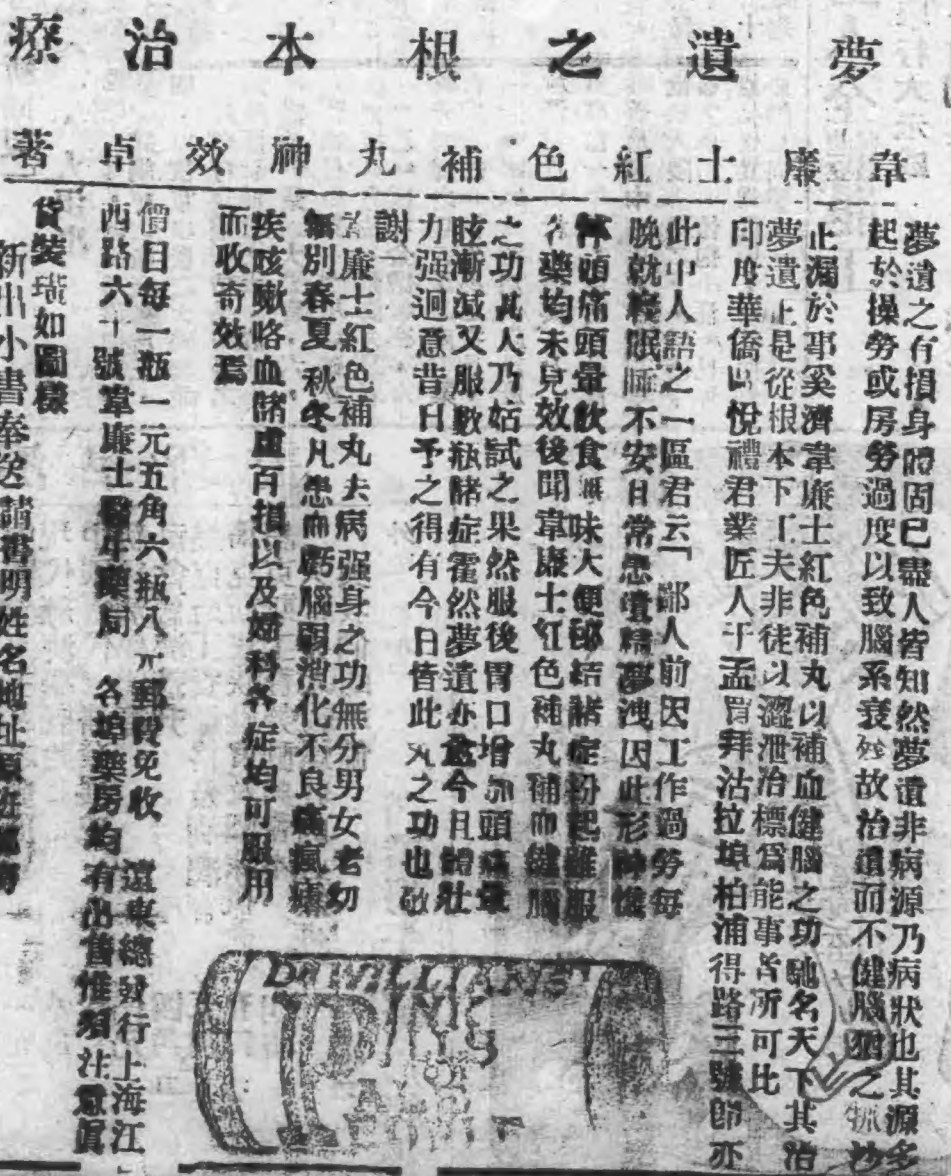 夢遺之根本治療
韋廉士紅色補丸神效卓著
夢遺之有損身體固已盡人皆知然夢遺非病源乃病狀也其源多
起於操勞或房勞過度以致腦系衰殘故治遺而不健腦猶之抓沙
止漏於事奚濟韋廉士紅色補丸以補血健腦之功馳名天下其治
夢遺正是從根本下工夫非徒以澀泄治標爲能事者所可比
印度華僑區悅禮君業匠人于孟買拜沽拉埠柏浦得路三號卽亦
此中人語之一區君云「鄙人前因工作過勞每
晚就寢眠睡不安日常患遺精夢洩因此形神憔
悴頭痛頭暈飲食無味大便秘結諸症紛起雖服
各藥均未見效後聞韋廉士紅色補丸補血健腦
之功其人乃姑試之果然服後胃口增加頭痛暈
眩漸減又服數瓶諸症霍然夢遺亦愈今且體壯
力强迴意昔日予之得有今日皆此丸之功也敬
謝」
韋廉士紅色補丸去病强身之功無分男女老幼
無別春夏秋冬凡患血虧腦弱消化不良
疾咳嗽咯血諸虛百損以及婦科各症均可服用
而收奇效焉
價目每一瓶一元五角六瓶八元郵費免收 遠東總發行上海江
西路六十號韋廉士醫生藥局 各埠藥房均有出售惟須注意眞
貨裝璜如圖樣
新出小書奉送請書明姓名地址原班郵寄
DR WILLIAMS'
PINK
PILLS
FOR
PALE
PEOPLE